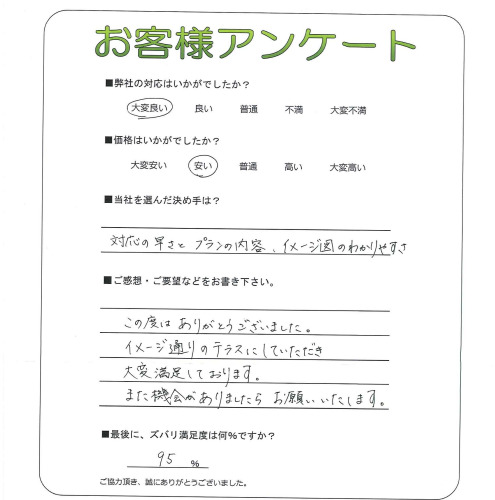 お客様アンケート
■弊社の対応はいかがでしたか？
大変良い 良い 普通 不満 大変不満
■価格はいかがでしたか？
大変安い 安い 普通 高い 大変高い
■当社を選んだ決め手は？
対応の早さと プランの内容、イメージ図のわかりやすさ
■ご感想・ご要望などをお書き下さい。
この度は ありがとうございました。
イメージ通りのテラスにしていただき
大変満足しております。
また機会がありましたら お願いいたします。
■最後に、ズバリ満足度は何%ですか？
95 %
ご協力頂き、誠にありがとうございました。